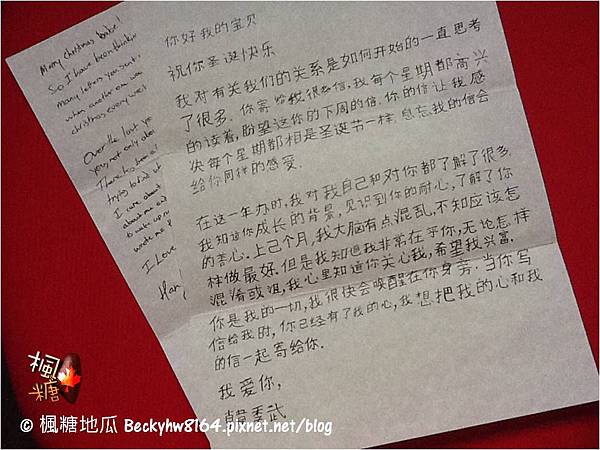 Merry christmas babe!
So I have been thinkin
many letters you sent
when another one wou
christmas every wee
Over the last ye
you, not only abou
Thanks babe
trying to find out
I care about
about me
to wake up n
wrote me
I Love
Han
你好我的宝贝
祝你圣诞快乐
我对有关我们的关系是如何开始的一直思考
了很多. 你寄给我很多信, 我每个星期都高兴
的读着, 盼望这你的下周的信. 你的信让我感
次每个星期都相是圣诞节一样. 息忘我的信会
给你同样的感受.
在这一年办时, 我对我自己和对你都了解了很多.
我知道你成长的背景, 见识到你的耐心, 了解了你
的善心. 上己个月, 我大脑有点混乱, 不知应该怎
样做最好. 但是我知道我非常在乎你, 无论怎样
混淆或沮, 我心里知道你关心我, 希望我兴富.
你是我的一切, 我很快会唤醒在你身旁. 当你写
信给我时, 你己经有了我的心, 我想把我的心和我
的信一起寄给你.
我爱你,
韩季武
楓糖
© 楓糖地瓜 Beckyhw8164.pixnet.net/blog